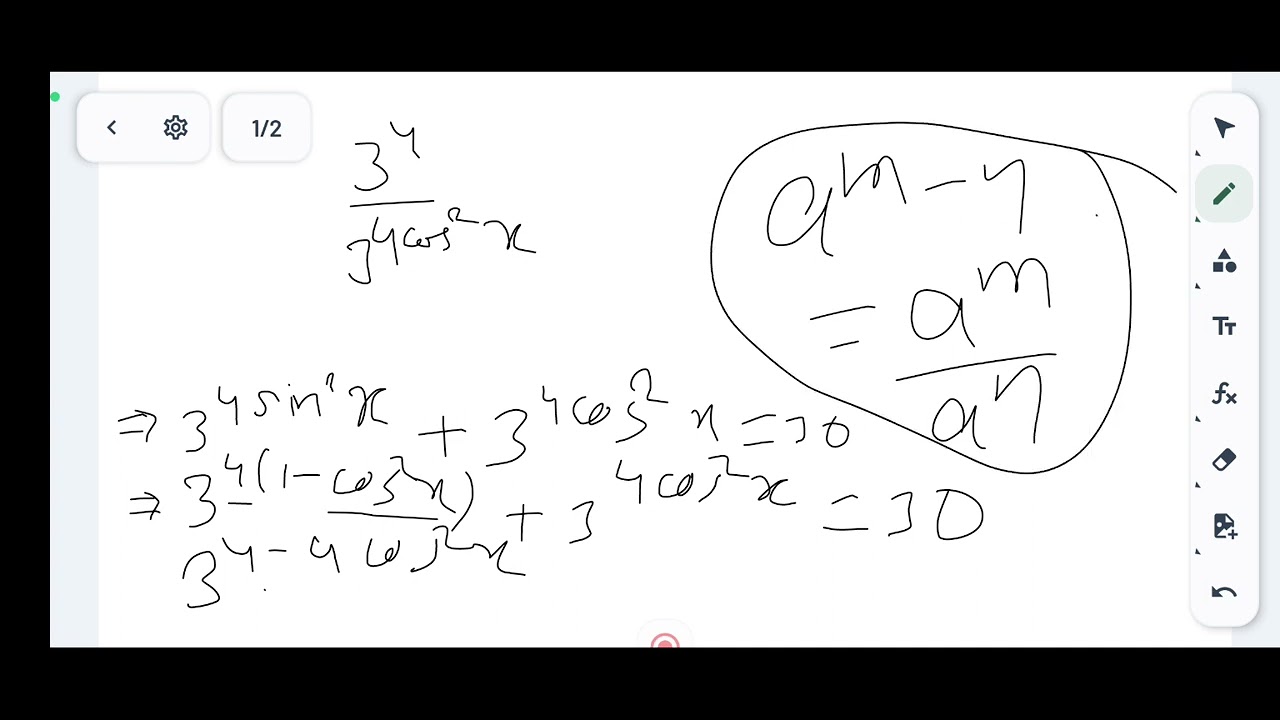 1/2
3⁴
3^4cos²x
a^m-n
= a^m
a^n
⇒ 3^4sin²x + 3^4cos²x = 30
⇒ 3^4(1-cos²x) + 3^4cos²x = 30
3^4-4cos²x
Tт
fx